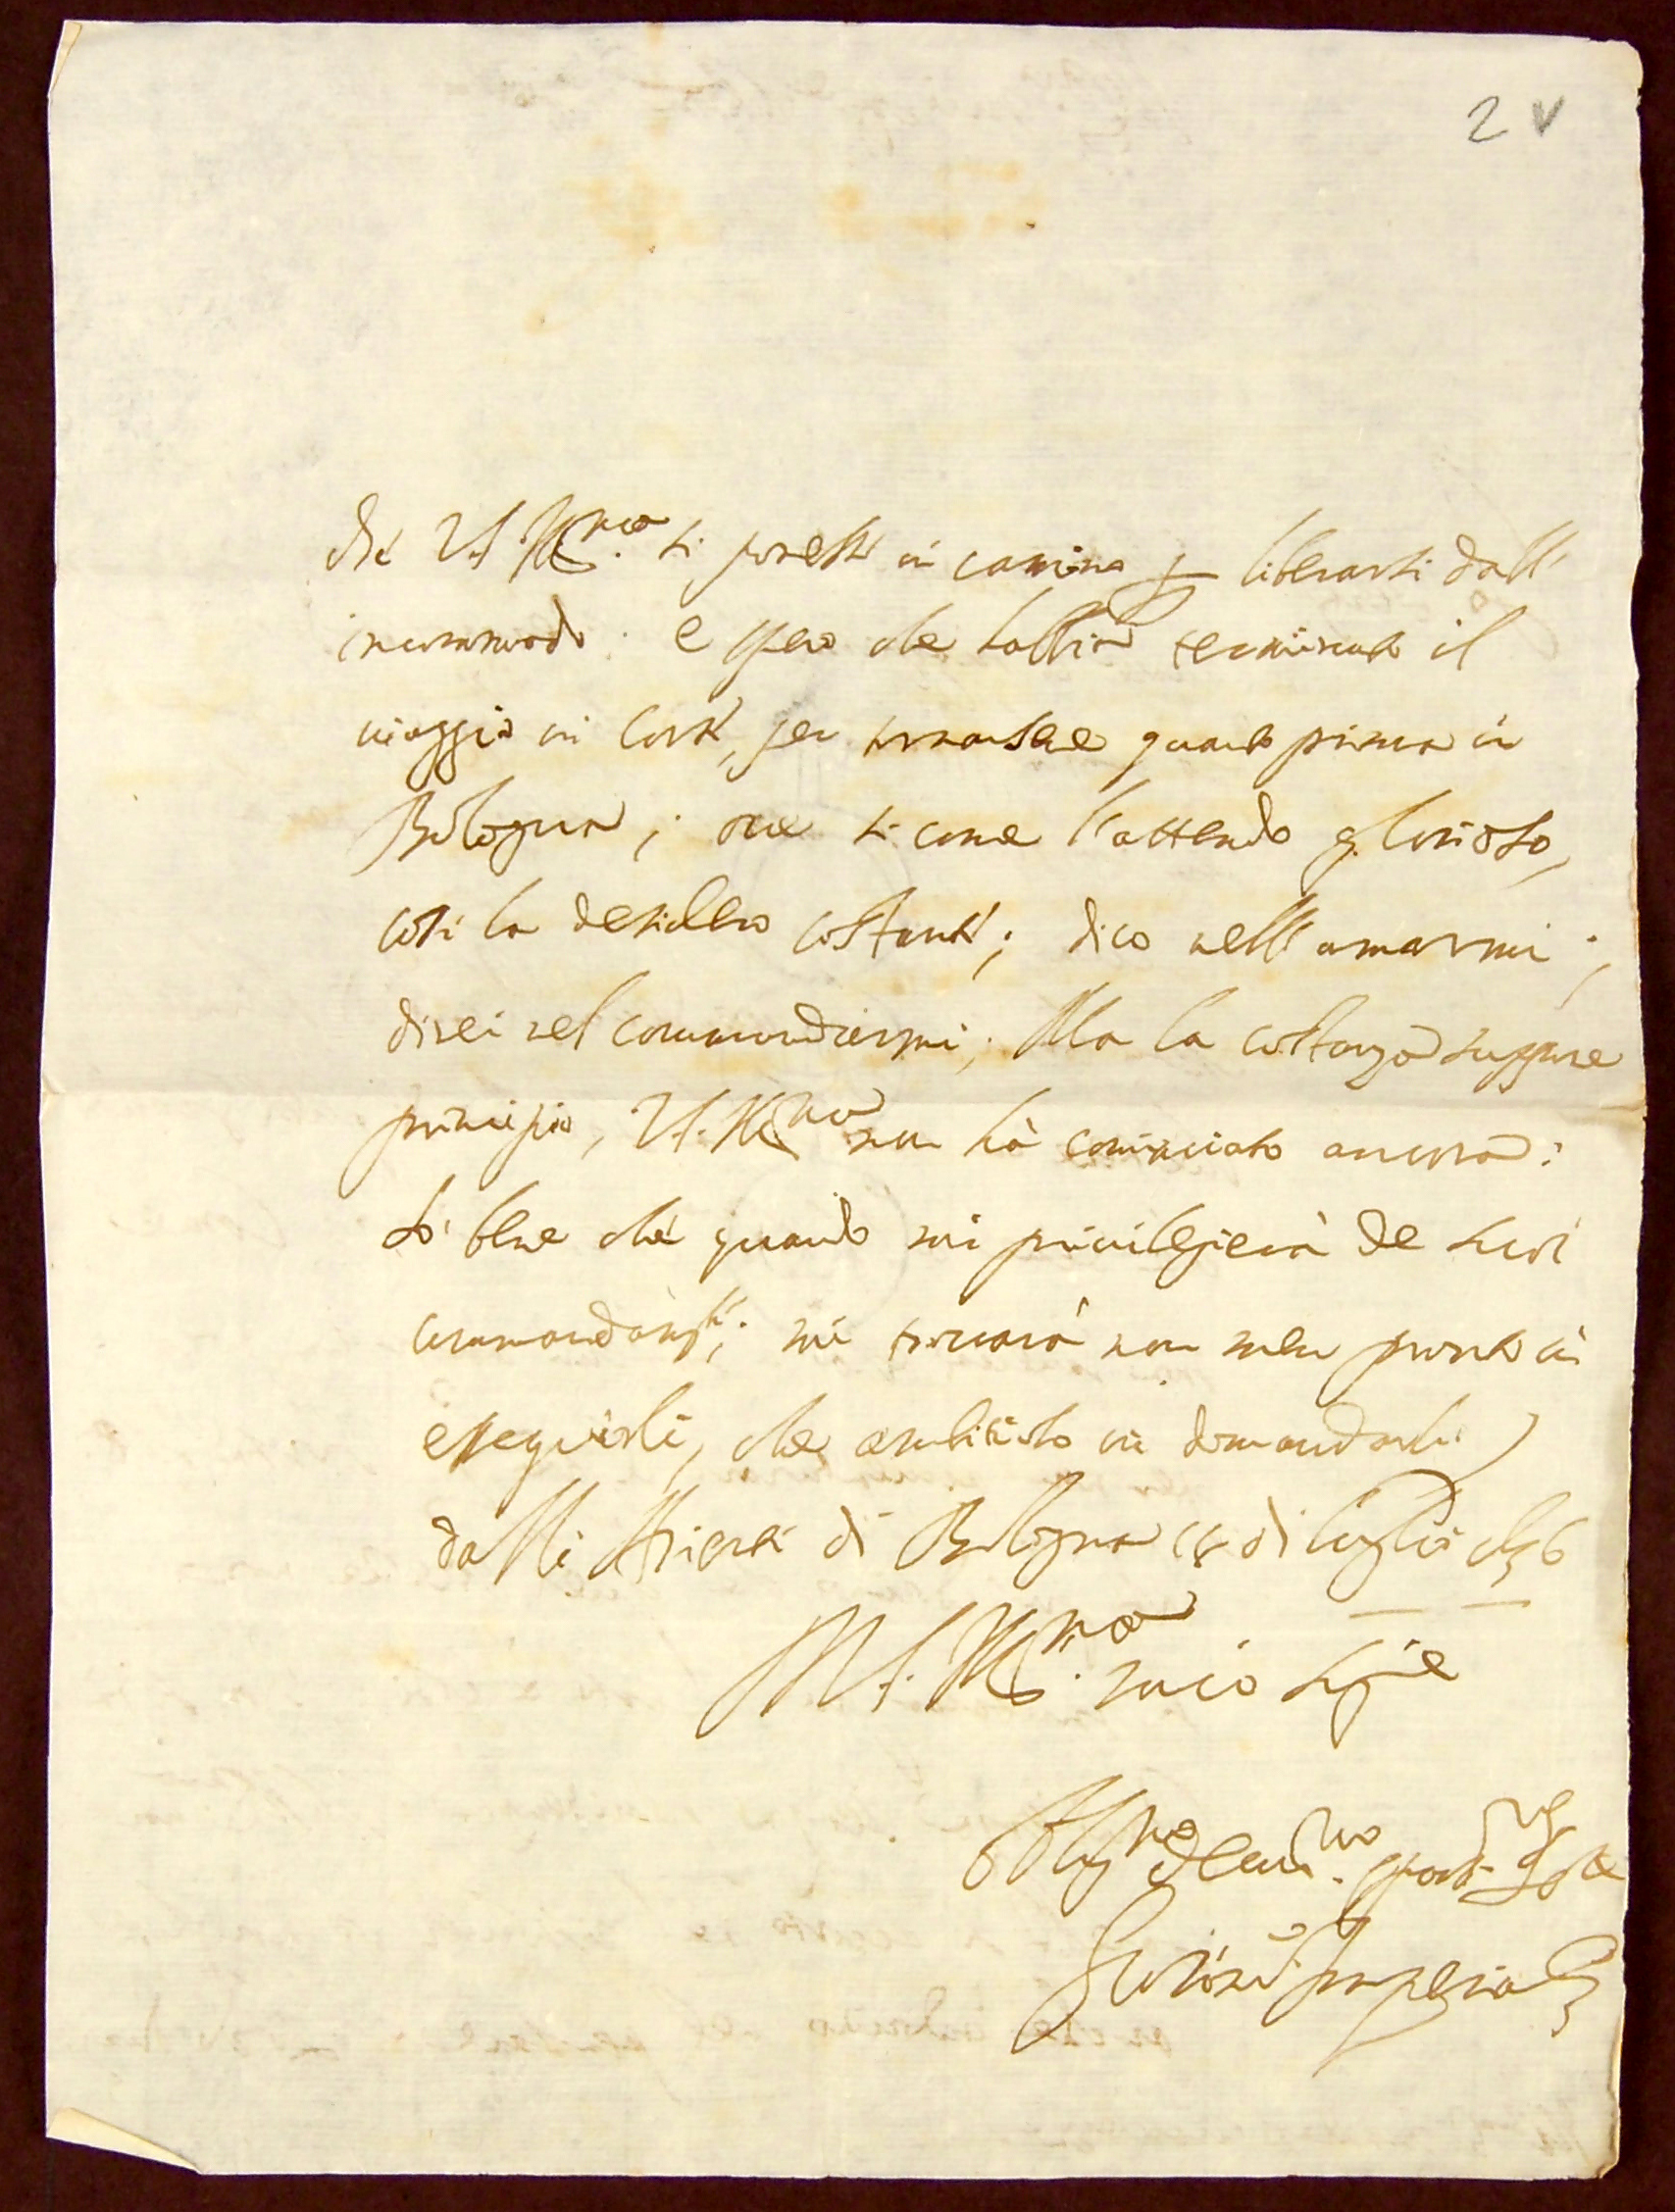 2 v
che V.S. Ill.ma si ponesse in camino p liberarsi dall'
incommodo. e spero che habbia terminato il
viaggio in Corte, per tornarsene quanto prima in
Bologna; oue si come l'attendo glorioso,
così la desidero costante; dico nell'amarmi;
direi nel commandarmi; Ma la costanza suppone
principio, V.S. Ill.ma non hà cominciato ancora:
sò bene che quando mi privilegierà de suoi
commandam.ti; mi trovarà non men pronto in
esseguirli, che ambitioso in domandarli
dalli di Bologna di luglio
V.S. Ill.ma mio Sig.re